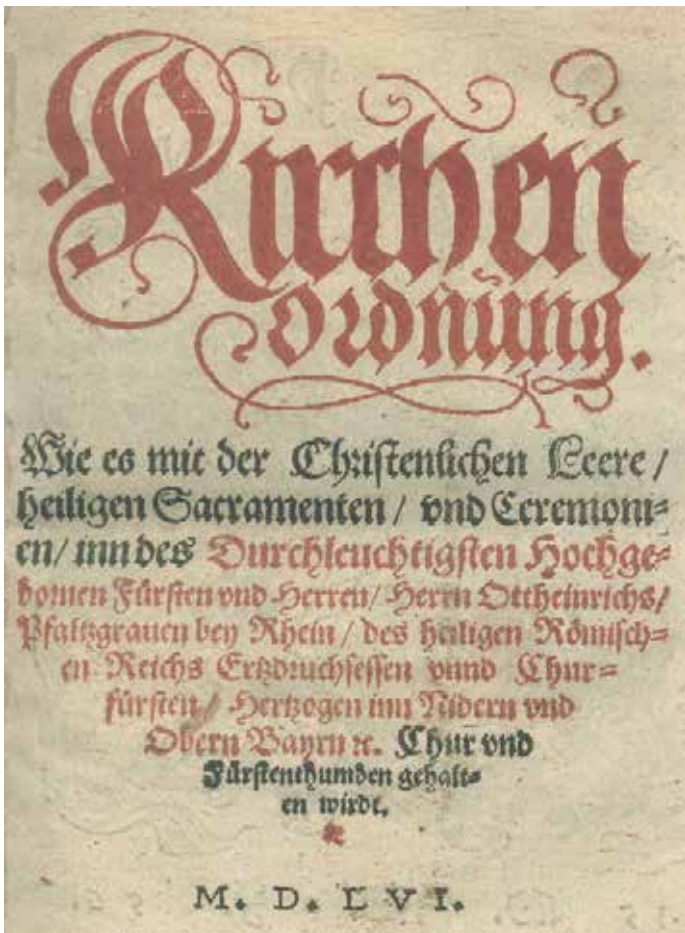 Kirchen
ordnung.
Wie es mit der Christenlichen Leere /
heiligen Sacramenten / vnd Ceremoni=
en / inn des Durchleuchtigsten Hochge=
bornen Fürsten vnd Herren / Herrn Ottheinrichs /
Pfaltzgrauen bey Rhein / des heiligen Römisch=
en Reichs Ertzdruchsessen vnnd Chur=
fürsten / Hertzogen inn Nidern vnd
Obern Bayrn ꝛc. Chur vnd
Fürstenthumben gehalt=
en wirdt.
M. D. LVI.